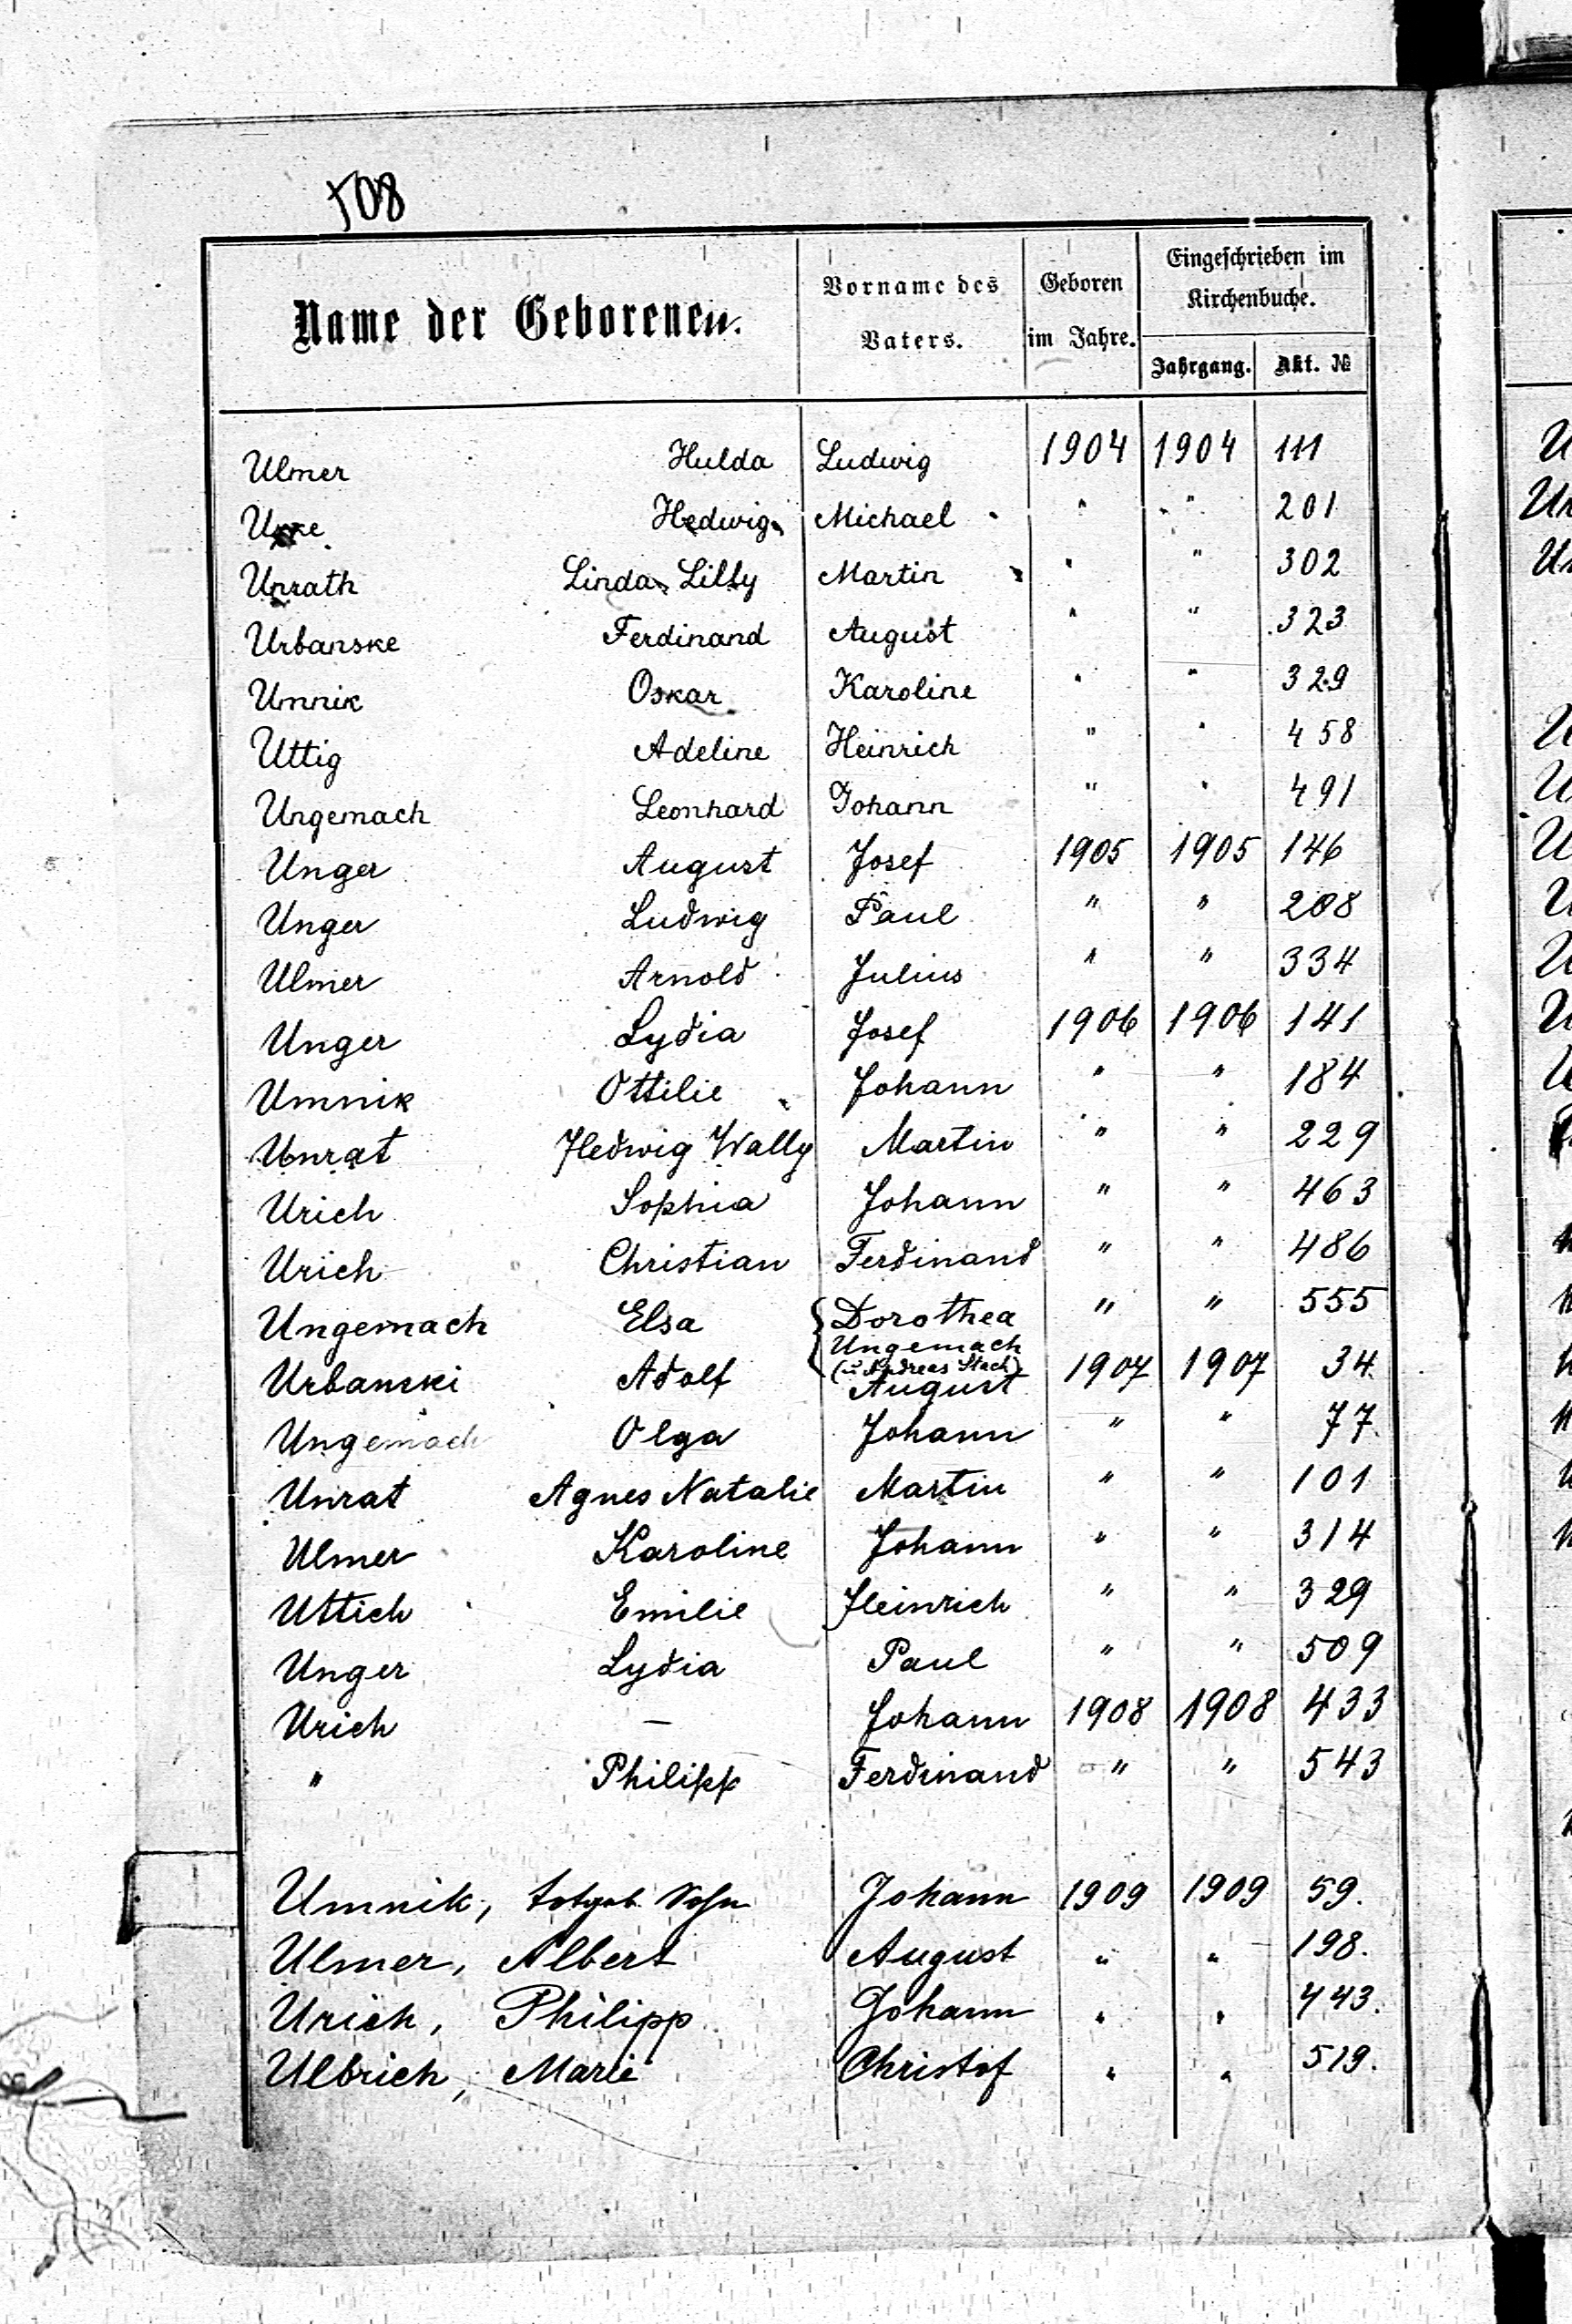 508
Name der Geborenen. Vorname des Vaters. Geboren im Jahre. Eingeschrieben im Kirchenbuche.
Jahrgang. Akt. №
Ulmer Hulda Ludwig 1904 1904 111
Hedwig Michael " " 201
Unrath Linda Lilly Martin " " 302
Urbanske Ferdinand August " " 323
Umnik Oskar Karoline " " 329
Uttig Adeline Heinrich " " 458
Ungemach Leonhard Johann " " 491
Unger August Josef 1905 1905 146
Unger Ludwig Paul " " 208
Ulmer Arnold Julius " " 334
Unger Lydia Josef 1906 1906 141
Umnik Ottilie Johann " " 184
Unrat Hedwig Wally Martin " " 229
Urich Sophia Johann " " 463
Urich Christian Ferdinand " " 486
Ungemach Elsa { Dorothea " " 555
Ungemach
(u Andreas Stach)
Urbanski Adolf August 1907 1907 34
Ungemach Olga Johann " " 77
Unrat Agnes Natalie Martin " " 101
Ulmer Karoline Johann " " 314
Uttich Emilie Heinrich " " 329
Unger Lydia Paul " " 509
Urich — Johann 1908 1908 433
" Philipp Ferdinand " " 543
Umnik, totgeb. Sohn Johann 1909 1909 59.
Ulmer, Albert August " " 198.
Urich, Philipp Johann " " 443.
Ulbrich, Marie Christof " " 519.